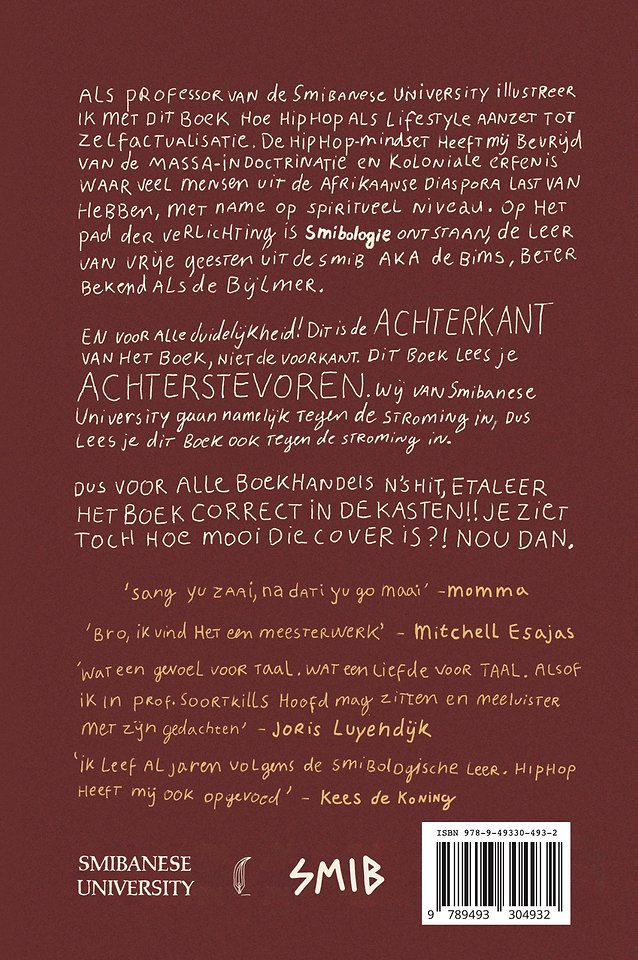 ALS PROFESSOR VAN de SMIBANESE UNIVERSITY illUSTREER
IK MET DIT BOEK HOE HIPHOP ALS LIFESTYLE AANZET TOT
ZELFACTUALISATIE. DE HIPHOP-MINDSET HEEFT MIJ BEVRIJD
VAN de MASSA-INDOCTRINATIE EN KOLONIALE ERFENIS
WAAR VEEL MENSEN UIT DE AFRIKAANSE DIASPORA LAST VAN
HEBBEN, MET NAME OP SPIRITUEEL NIVEAU. OP HET
PAD DER VERLICHTING IS SMIBOLOGIE ONTSTAAN, DE LEER
VAN VRIJE GEESTEN UIT de SMIB AKA de BIMS, BETER
BEKEND ALS de BIJLMER.
EN VOOR ALLE duidelijkheid! DIT IS dE ACHTERKANT
VAN HET BOEK, NIET de VOORKANT. DIT BOEK LEES je
ACHTERSTEVOREN. Wij VAN Smibanese
University gaan namelijk TEGEN de STROMING in, DUS
LEES je dit BOEK OOK TEGEN de STROMING in.
DUS VOOR ALLE BOEKHANDELS N'SHIT, ETALEER
HET BOEK CORRECT IN DE KASTEN!! JE ZIET
TOCH HOE MOOI DIE COVER IS?! NOU DAN.
'Sang yu ZAAi, na dATi yu go maai' - momma
'BRO, ik vind HET een MEESTERWERK' - MITCHELL ESAJAS
'WAT een gevoel voor TAAL. WAT een LiEFDE voor TAAL. ALSOF
ik in PROF. SOORTKILLS HOOFD mag ZITTEN en MEELUISTER
MET zijn gedachten' - JORIS LUYENDIJK
'ik LEEF AL jAREN VOLGENS de SMIBOLOGISCHE LEER. HIPHOP
HEEFT mij OOK opgevoed' - KEES de KONING
ISBN 978-9-49330-493-2
SMIBANESE
UNIVERSITY
SMIB
9 789493 304932